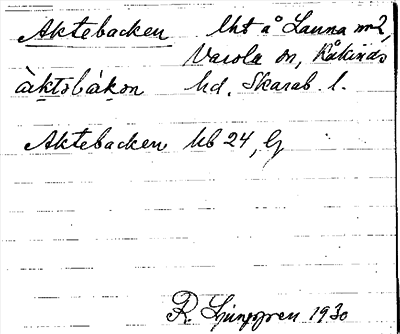 Aktebacken lht å Launa nr 2,
Varola sn, Kåkinds
àktəbákən hd. Skarab. l.
Aktebacken kb 24, G
R. Ljunggren 1930